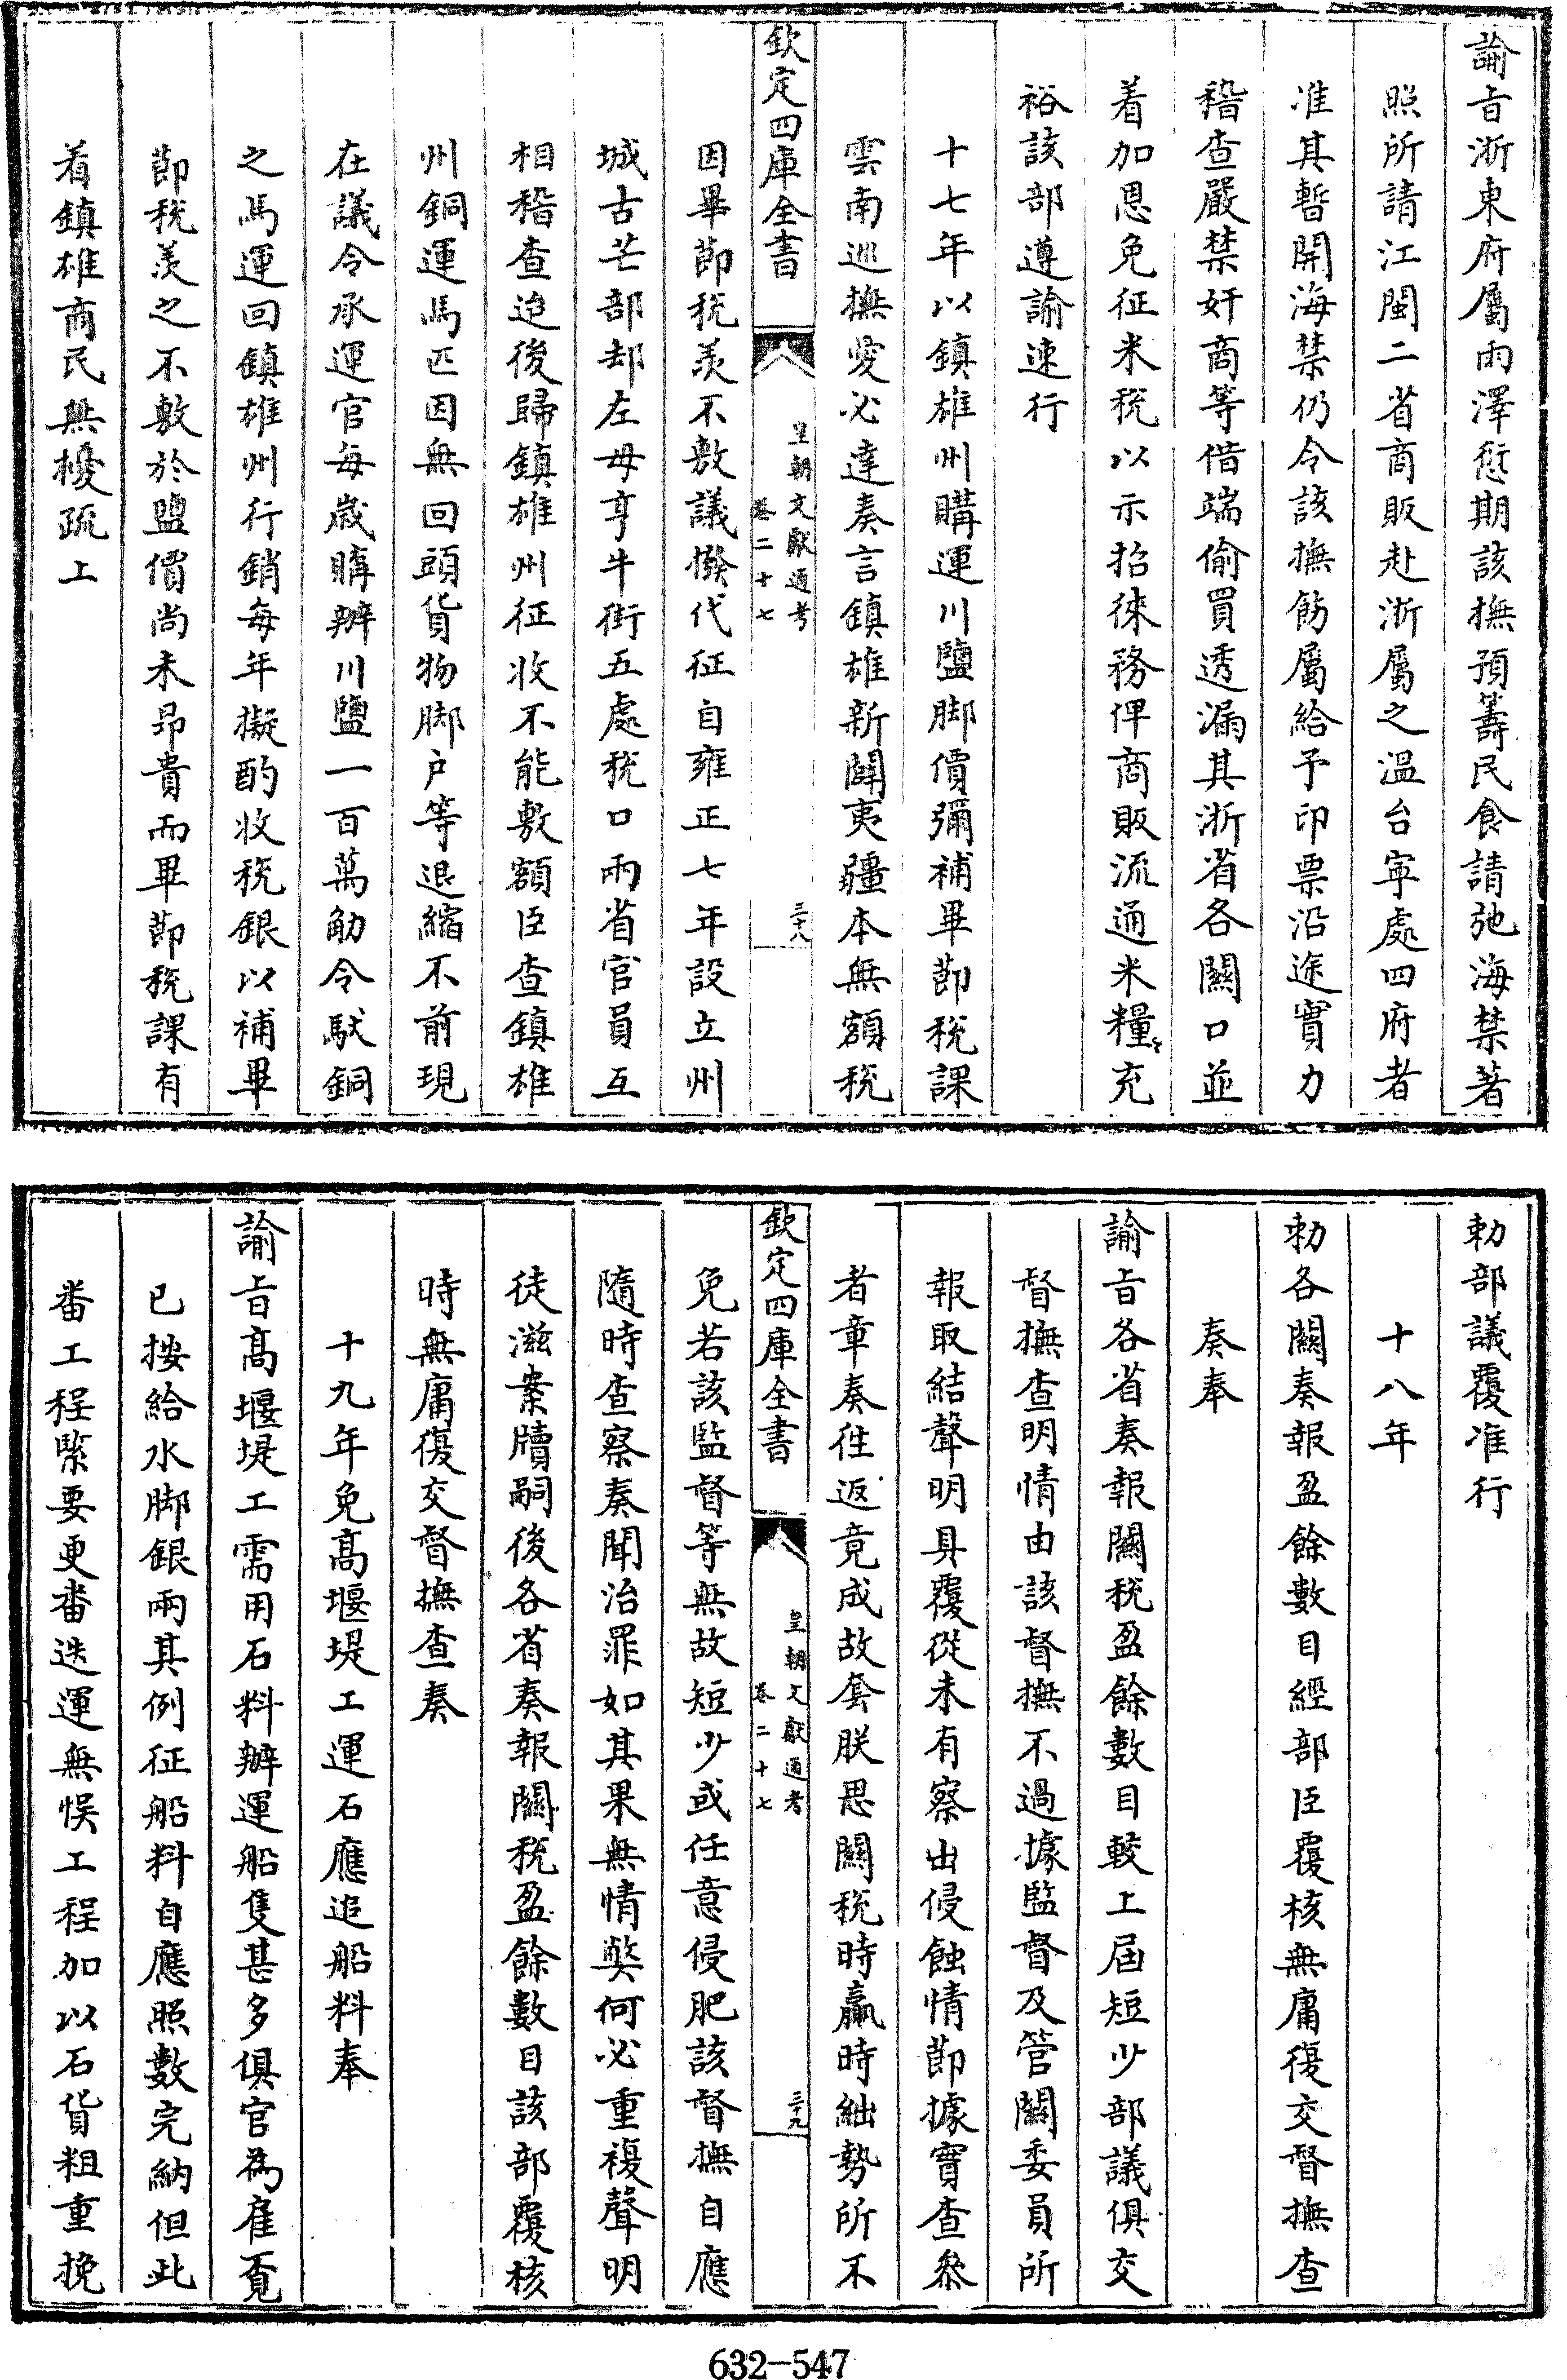 諭㫖浙東府屬雨澤愆期該撫預籌民食請弛海禁著
照所請江閩二省商販赴浙屬之温台寕處四府者
准其暫開海禁仍令該撫飭屬給予印票沿途實力
稽查嚴禁奸商等借端偷買透漏其浙省各關口並
着加恩免征米税以示招徠務俾商販流通米糧充
裕該部遵諭速行
十七年以鎮雄州購運川鹽脚價彌補畢節税課
雲南巡撫愛必達奏言鎮雄新闢夷疆本無額税
欽定四庫全書
皇朝文獻通考
卷二十七
三十八
因畢節税羨不敷議撥代征自雍正七年設立州
城古芒部却左毋亨牛街五處税口兩省官員互
相稽查迨後歸鎮雄州征收不能敷額臣查鎮雄
州銅運馬匹因無回頭貨物脚户等退縮不前現
在議令承運官每歲購辦川鹽一百萬觔令馱銅
之馬運回鎮雄州行銷每年擬酌收税銀以補畢
節税羨之不敷於鹽價尚未昂貴而畢節税課有
着鎮雄商民無擾疏上
勅部議覆准行
十八年
勅各關奏報盈餘數目經部臣覆核無庸復交督撫查
奏奉
諭㫖各省奏報關税盈餘數目較上屆短少部議俱交
督撫查明情由該督撫不過據監督及管關委員所
報取結聲明具覆從未有察出侵蝕情節據實查叅
者章奏徃返竟成故套朕思關税時贏時絀勢所不
欽定四庫全書
皇朝文獻通考
卷二十七
三十九
免若該監督等無故短少或任意侵肥該督撫自應
隨時查察奏聞治罪如其果無情弊何必重複聲明
徒滋案牘嗣後各省奏報關税盈餘數目該部覆核
時無庸復交督撫查奏
十九年免髙堰堤工運石應追船料奉
諭㫖髙堰堤工需用石料辦運船隻甚多俱官為雇覔
已按給水脚銀兩其例征船料自應照數完納但此
番工程緊要更番迭運無悞工程加以石貨粗重挽
632-547